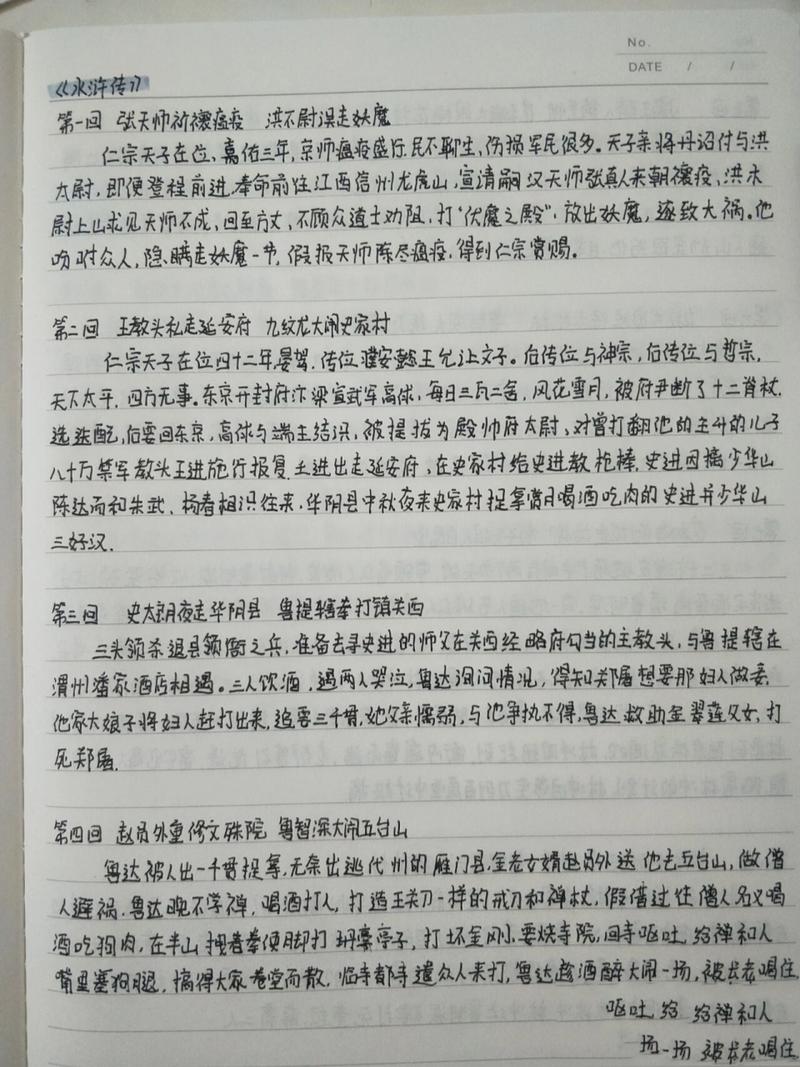 No.
DATE / /
《水浒传》
第一回 张天师祈禳瘟疫 洪太尉误走妖魔
仁宗天子在位、嘉佑三年,京师瘟疫盛行.民不聊生,伤损军民很多。天子亲将丹诏付与洪
太尉,即便登程前进,奉命前往江西信州龙虎山,宣请嗣汉天师张真人来朝禳疫、洪太
尉上山求见天师不成、回至方丈、不顾众道士劝阻,打“伏魔之殿”,放出妖魔,遂致大祸。他
吩咐众人,隐瞒走妖魔一节,假报天师除尽瘟疫,得到仁宗赏赐。
第二回 王教头私走延安府 九纹龙大闹史家村
仁宗天子在位四十二年,晏驾.传位濮安懿王允让文子。后传位与神宗,后传位与哲宗,
天下太平.四方无事。东京开封府汴梁宣武军高俅,每日三瓦二舍,风花雪月,被府尹断了十二脊杖.
迭配,后要回东京,高俅与端王结识,被提拔为殿帅府太尉、对曾打翻他的王升的儿子
八十万禁军教头王进施行报复.王进出走延安府、在史家村给史进教枪棒.史进因擒少华山
陈达而和朱武、杨春相识往来,华阴县中秋夜来史家村捉拿赏月喝酒吃肉的史进并少华山
三好汉.
第三回 史大郎夜走华阴县 鲁提辖拳打镇关西
三头领杀退县领衙之兵,准备去寻史进的师父在关西经略府勾当的王教头,与鲁提辖在
渭州潘家酒店相遇。三人饮酒,遇两人哭泣,鲁达询问情况,得知郑屠想要那妇人做妾
他家大娘子将妇人赶打出来,追要三千贯,她父亲懦弱,与他争执不得,鲁达救助金翠莲父女,打
死郑屠.
第四回 赵员外重修文殊院 鲁智深大闹五台山
鲁达被人出一千贯捉拿,无奈出逃代州的雁门县,金老女婿赵员外送他去五台山,做僧
人避祸.鲁达晚不学禅,喝酒打人,打造王关刀一样的戒刀和禅杖,假借过往僧人名义喝
酒吃狗肉,在半山拽着拳使脚打亭子,打坏金刚,要烧寺院,回寺呕吐,给禅和人
嘴里塞狗腿,搞得大家卷堂而散.临寺都寺遣众人来打,鲁达趁酒醉大闹一场,被长老喝住.
呕吐给 给禅和人
场一场 被长老喝住